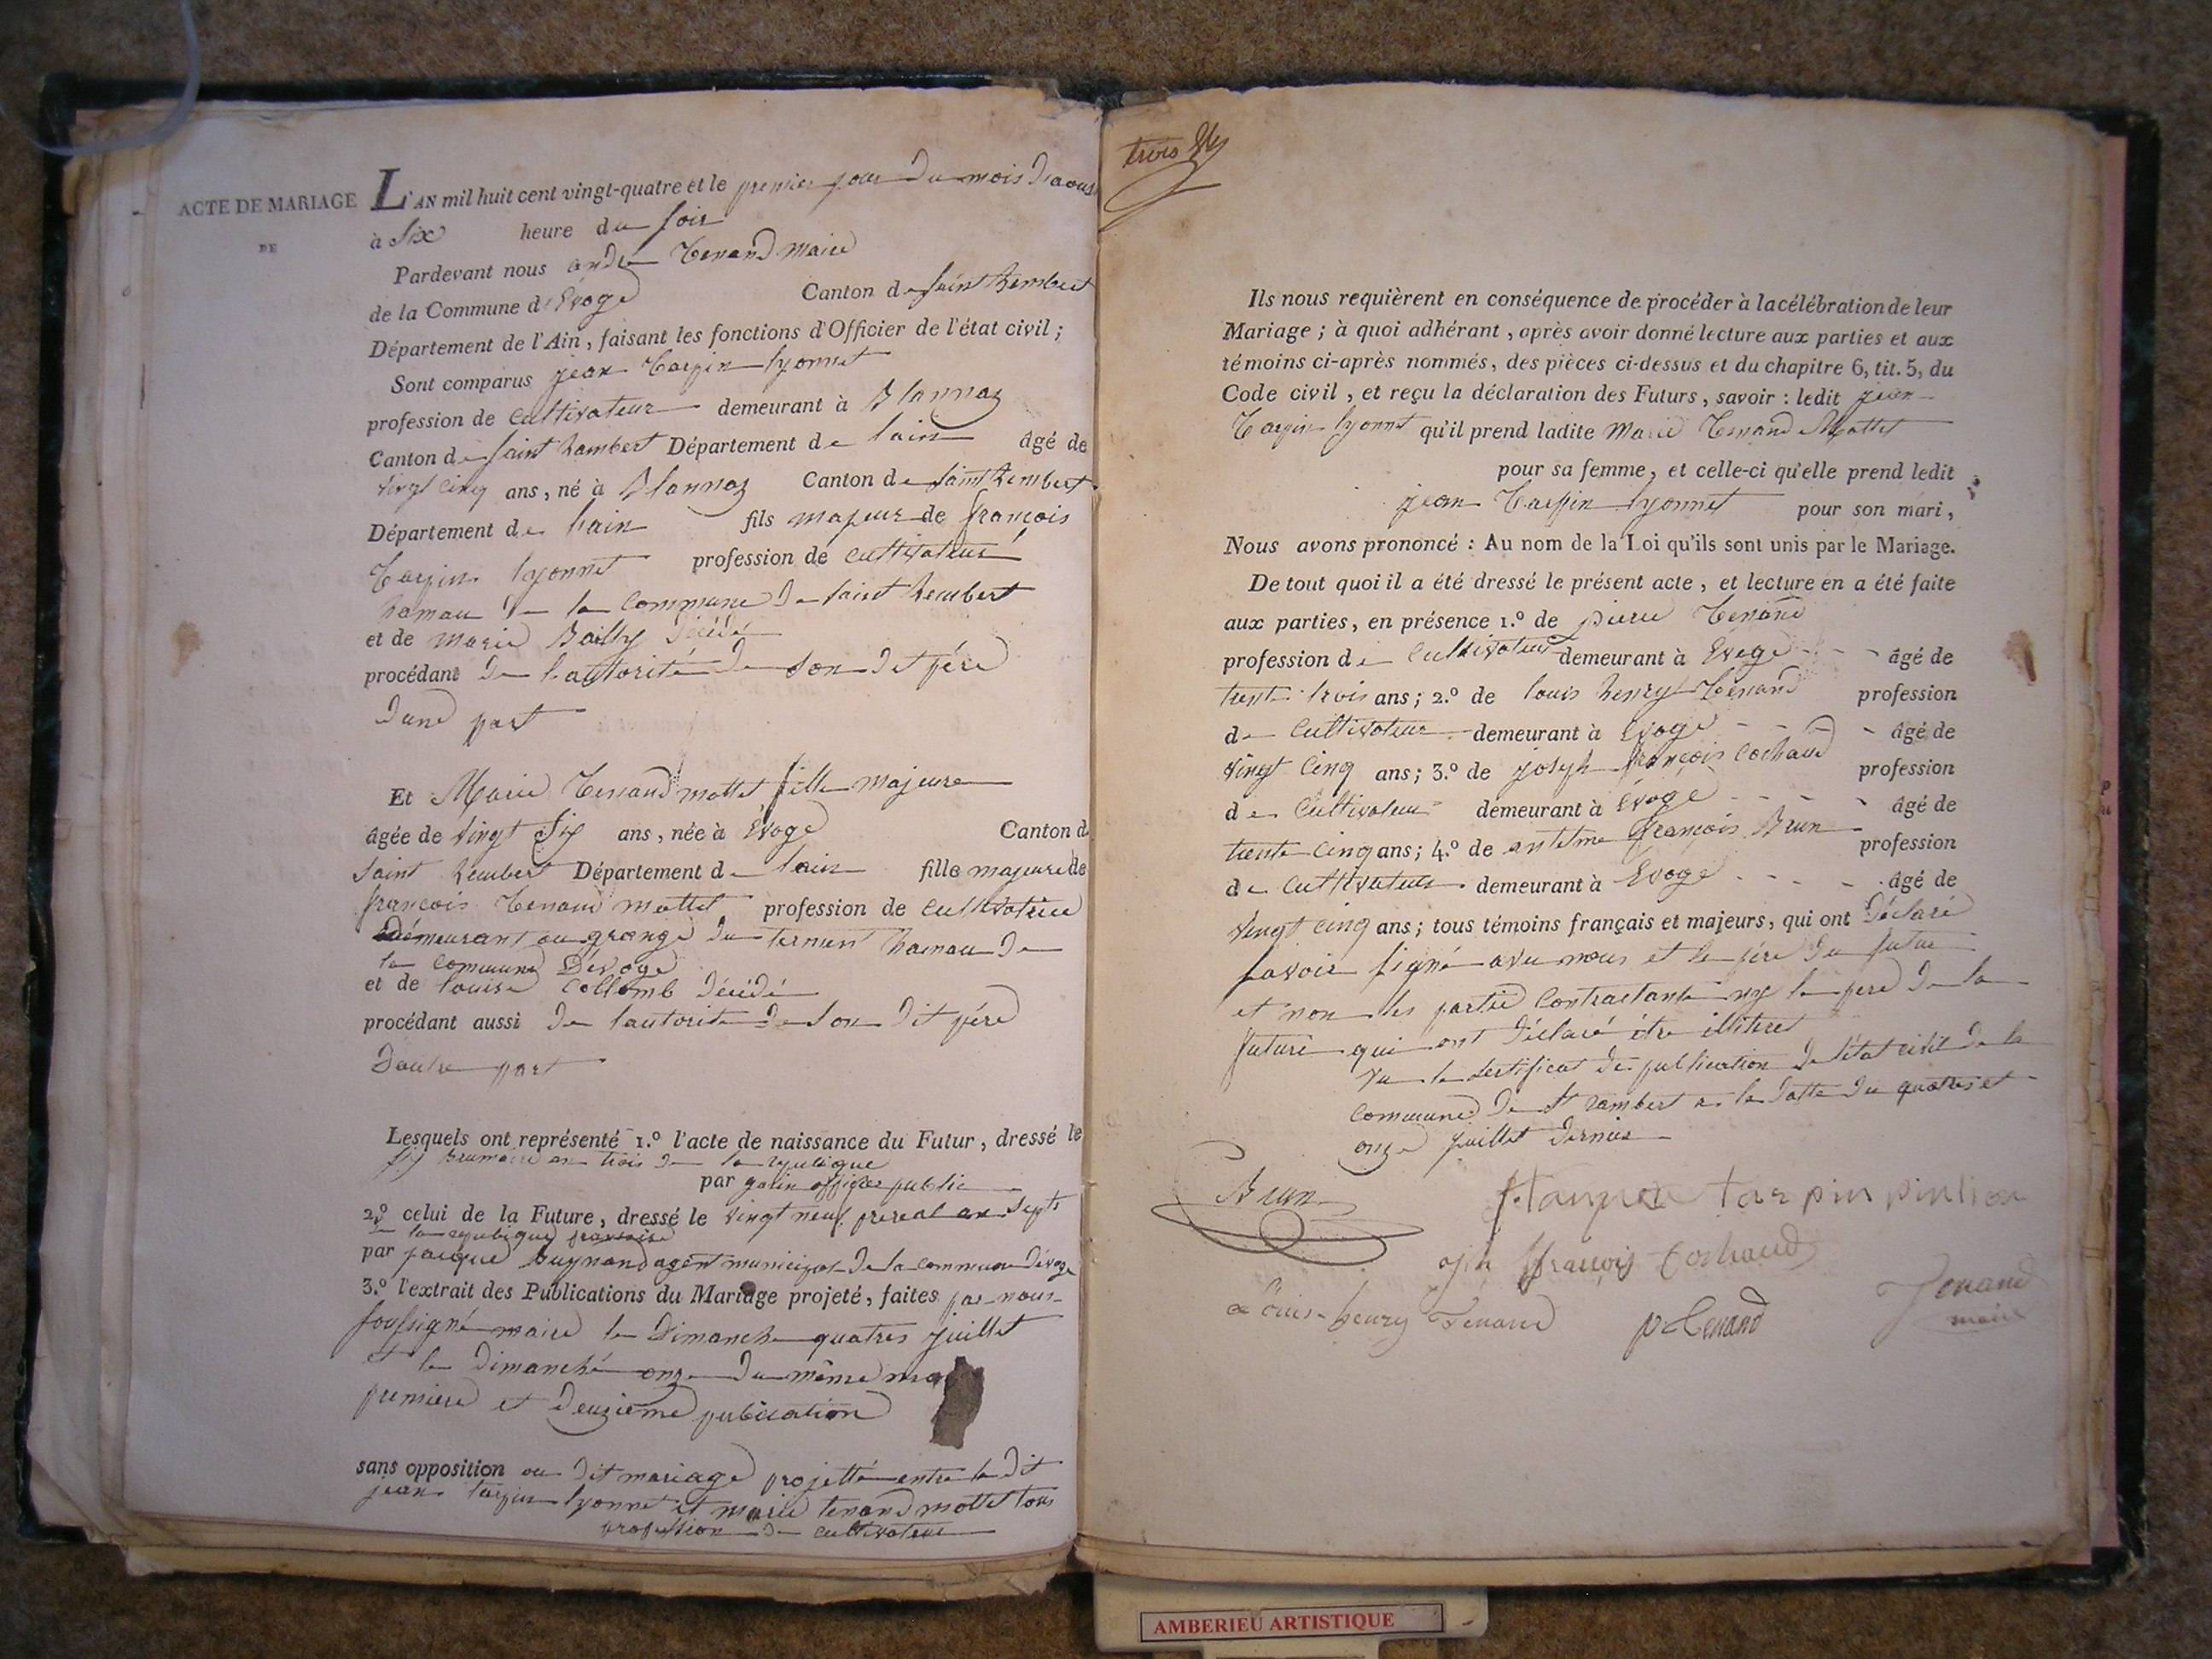 ACTE DE MARIAGE
DE
L'AN mil huit cent vingt-quatre et le premier jour du mois daous
à Six heure du soir
Pardevant nous andré Tenand Maire
de la Commune d'Evoge Canton de saint Rambert
Département de l'Ain, faisant les fonctions d'Officier de l'état civil ;
Sont comparus jean Tarpin lyonnet
profession de Cultivateur demeurant à Blannaz
Canton de saint Rambert Département de lain âgé de
vingt cinq ans, né à Blannaz Canton de saint Rembert
Département de lain fils majeur de françois
Tarpin lyonnet profession de cultivateur
hamau de la Commune de saint Rembert
et de Marie Bailly décédé
procédant de lautorité de son dit père
dune part
Et Marie Tenand mottet fille majeure
âgée de Vingt Six ans, née à Evoge Canton d
saint Rembert Département de lain fille majeure de
françois Tenand mottet profession de cultivatrice
Démeurant au grange du ternent hamau de
la commune Dévoge
et de louise Collomb décédé
procédant aussi de lautorité de son dit père
dautre part
Lesquels ont représenté 1.º l'acte de naissance du Futur, dressé le
six Brumaire an trois de la republique
par garin officier public
2.º celui de la Future, dressé le vingt neuf prereal an Sept
de la republique francaise
par jacque Buynand agent municipal de la commune dévoge
3.º l'extrait des Publications du Mariage projeté, faites par nous
soussigné maire le Dimanche quatres juillet
et le Dimanché onze du même
premiere et deuzieme publication
sans opposition au dit mariage projetté entre le dit
jean tarpin lyonnet et marie tenand mottet tous
profession de cultivateur
trois
Ils nous requièrent en conséquence de procéder à la célébration de leur
Mariage ; à quoi adhérant, après avoir donné lecture aux parties et aux
témoins ci-après nommés, des pièces ci-dessus et du chapitre 6, tit. 5, du
Code civil, et reçu la déclaration des Futurs, savoir : ledit jean
Tarpin lyonnet qu'il prend ladite Marie Tenand Mottet
pour sa femme, et celle-ci qu'elle prend ledit
jean Tarpin lyonnet pour son mari,
Nous avons prononcé : Au nom de la Loi qu'ils sont unis par le Mariage.
De tout quoi il a été dressé le présent acte, et lecture en a été faite
aux parties, en présence 1.º de pierre Tenand
profession de Cultivateur demeurant à Evoge âgé de
trente trois ans ; 2.º de louis henry Tenand profession
de Cultivateur demeurant à Evoge âgé de
vingt Cinq ans ; 3.º de joseph françois Cochaud profession
de Cultivateur demeurant à Evoge âgé de
trente Cinq ans ; 4.º de antelme françois Brun profession
de Cultivateur demeurant à Evoge âgé de
vingt cinq ans ; tous témoins français et majeurs, qui ont déclaré
savoir signé avec nous et le père du futur
et non les partie Contractante ny le pere de la
future qui ont déclaré être illiteret
vu le sertificat de publication de létat civil de la
commune de St rambert a la datte du quatres et
onze juillet dernier
Brun
tarpin
françois Cochaud
Louis-henry Tenand
p Tenand
Tenand
maire
AMBERIEU ARTISTIQUE